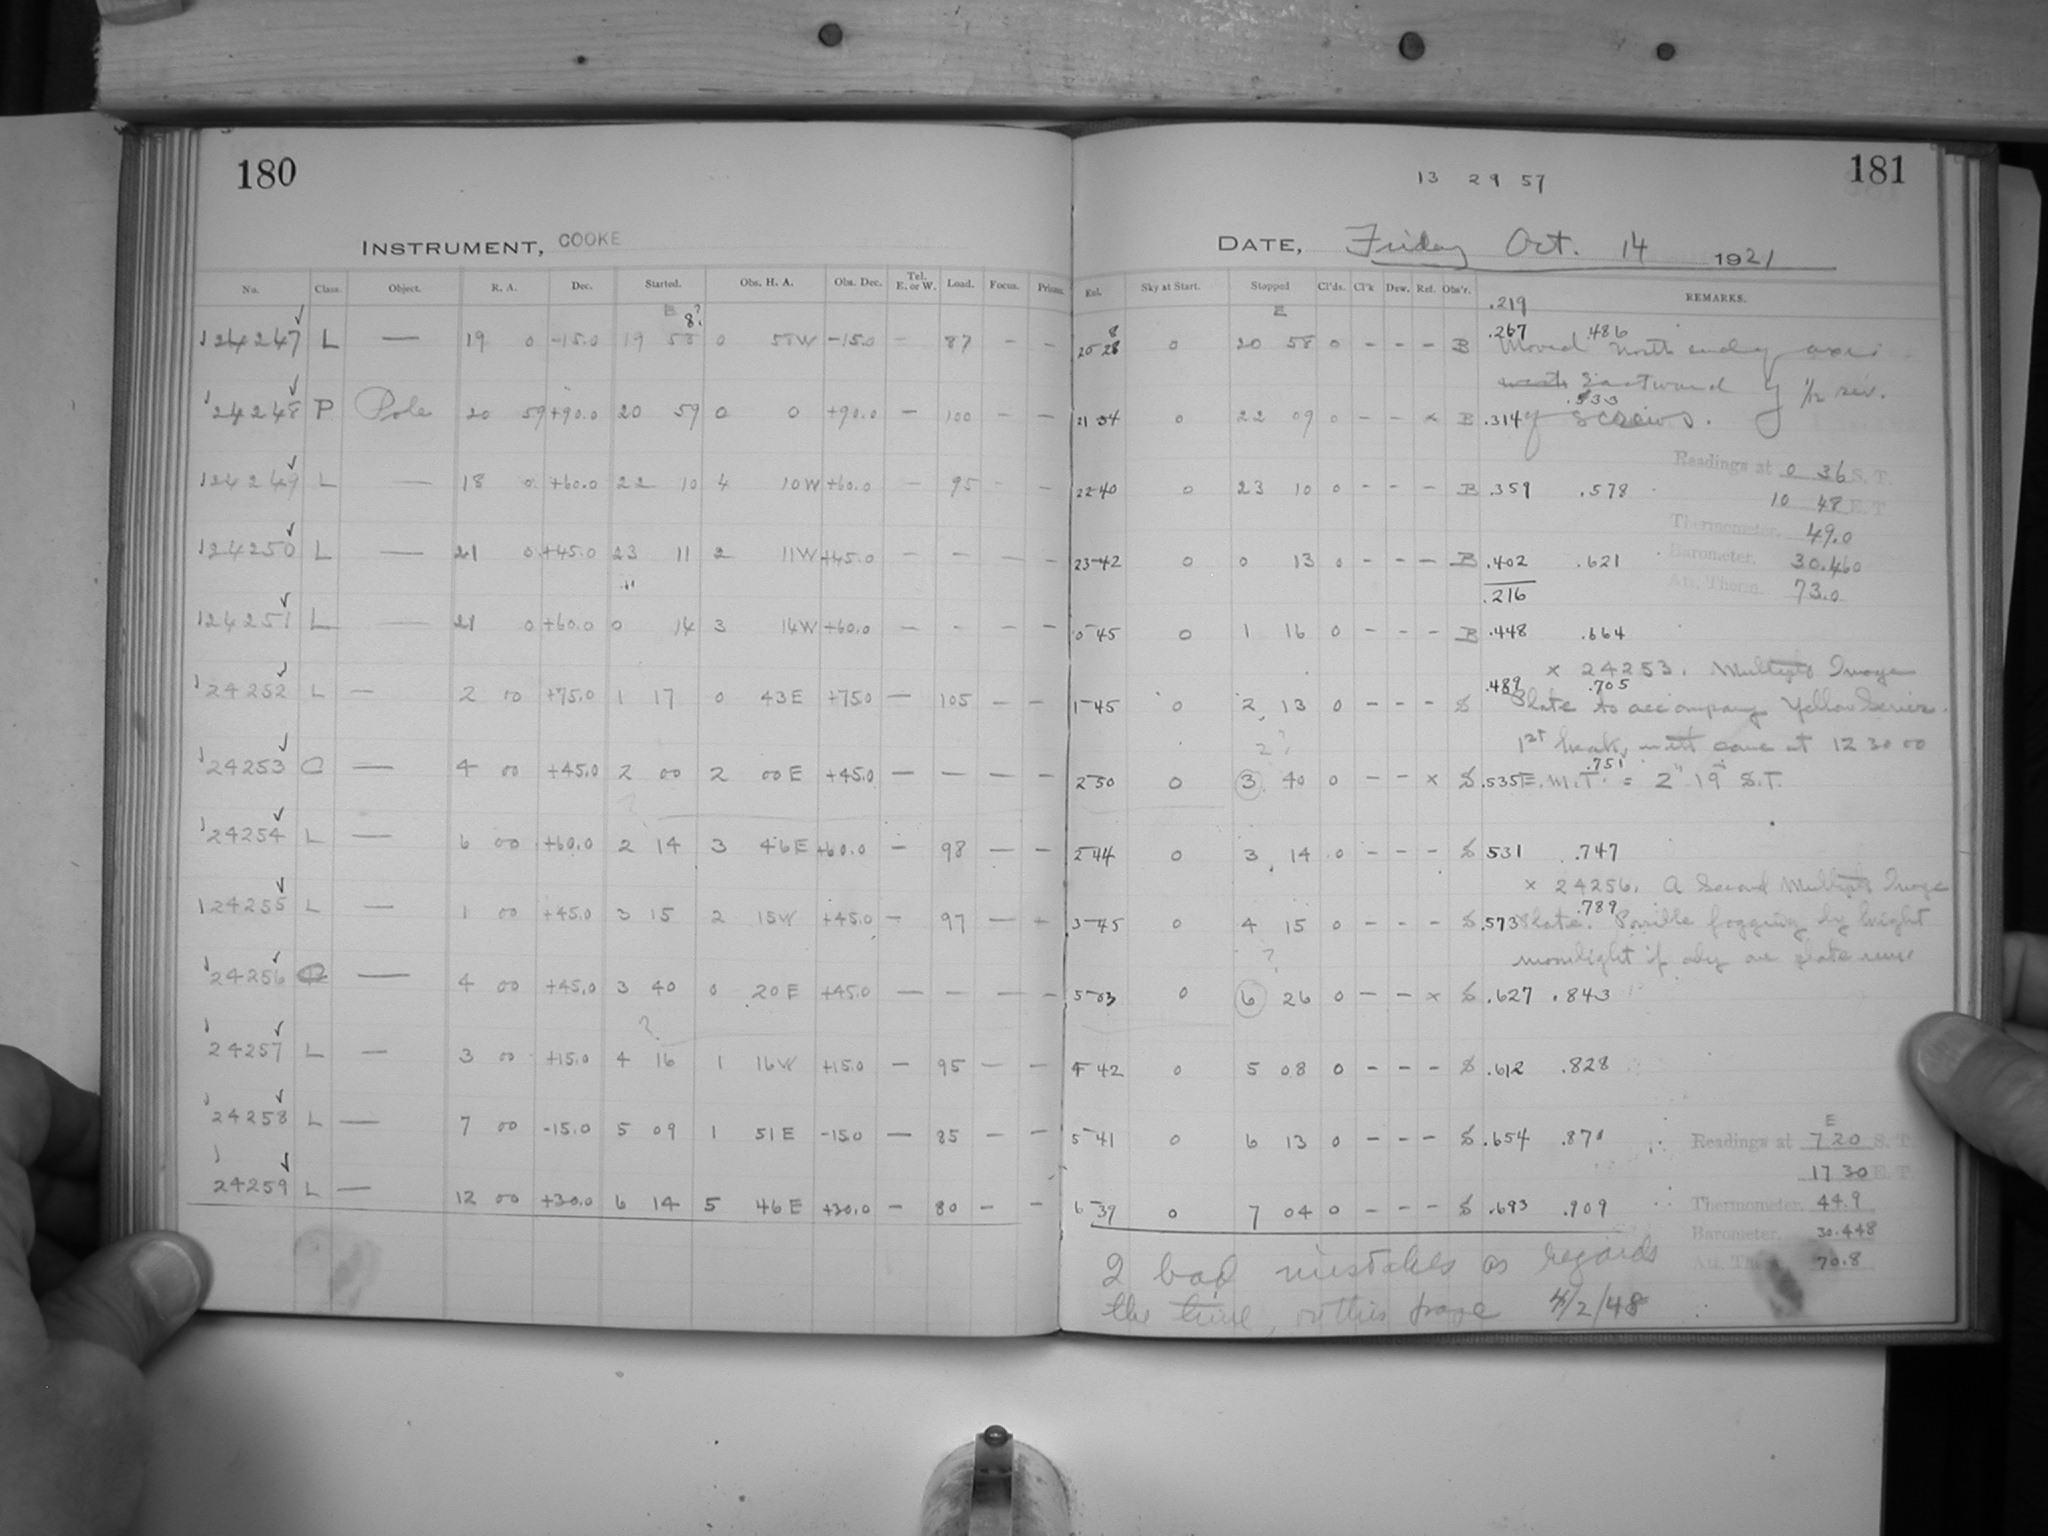 180
INSTRUMENT, COOKE
No. Class. Object. R. A. Dec. Started. Obs. H. A. Obs. Dec. Tel. E. or W. Load. Focus. Prism.
E 8?
124247 L — 19 0 -15.0 19 58 0 58W -15.0 - 87 - -
124248 P Pole 20 59 +90.0 20 59 0 0 +90.0 - 100 - -
124249 L — 18 0 +60.0 22 10 4 10W +60.0 - 95 - -
124250 L — 21 0 +45.0 23 11 2 11W +45.0 - - - -
124251 L — 21 0 +60.0 0 14 3 14W +60.0 - - - -
124252 L — 2 00 +75.0 1 17 0 43E +75.0 - 105 - -
124253 C — 4 00 +45.0 2 00 2 00E +45.0 - - - -
?
124254 L — 6 00 +60.0 2 14 3 46E +60.0 - 98 - -
124255 L — 1 00 +45.0 3 15 2 15W +45.0 - 97 - +
124256 C — 4 00 +45.0 3 40 0 20E +45.0 - - - -
?
124257 L — 3 00 +15.0 4 16 1 16W +15.0 - 95 - -
124258 L — 7 00 -15.0 5 09 1 51E -15.0 - 85 - -
124259 L — 12 00 +30.0 6 14 5 46E +30.0 - 80 - -
181
13 29 57
DATE, Friday Oct. 14 1921
Exl. Sky at Start. Stopped Cl'ds. Cl'k Dew. Ref. Obs'r. REMARKS.
E .219
8 .267 .486
20-28 0 20 58 0 - - - B Moved north end of axis
west Eastward by 1/12 rev.
.533
21 34 0 22 09 0 - - x B .314 of screws.
Readings at 0 36 S. T.
22-40 0 23 10 0 - - - B .359 .578
10 48 E. T.
Thermometer, 49.0
23-42 0 0 13 0 - - - B .402 .621
Barometer, 30.460
.216
Att. Therm. 73.0
0-45 0 1 16 0 - - - B .448 .664
x 24253. Multiple Image
.489 .705
1-45 0 2 13 0 - - - S Plate to accompany Yellow Series.
2? 1st break, came at 12 30 00
.751
2-50 0 3 40 0 - - x S .535 E. M. T. = 2h 19m S.T.
2-44 0 3 14 0 - - - S 531 .747
x 24256. A Second Multiple Image
.789
3-45 0 4 15 0 - - - S .573 Plate. Possible fogging by bright
? moonlight if any on plate
5-03 0 6 26 0 - - x S .627 .843
4-42 0 5 08 0 - - - S .612 .828
E
5-41 0 6 13 0 - - - S .654 .870
Readings at 7 20 S. T.
17 30 E. T.
Thermometer, 44.9
6-39 0 7 04 0 - - - S .693 .909
Barometer, 30.448
Att. Therm. 70.8
2 bad mistakes as regards
the time, on this page 4/2/48